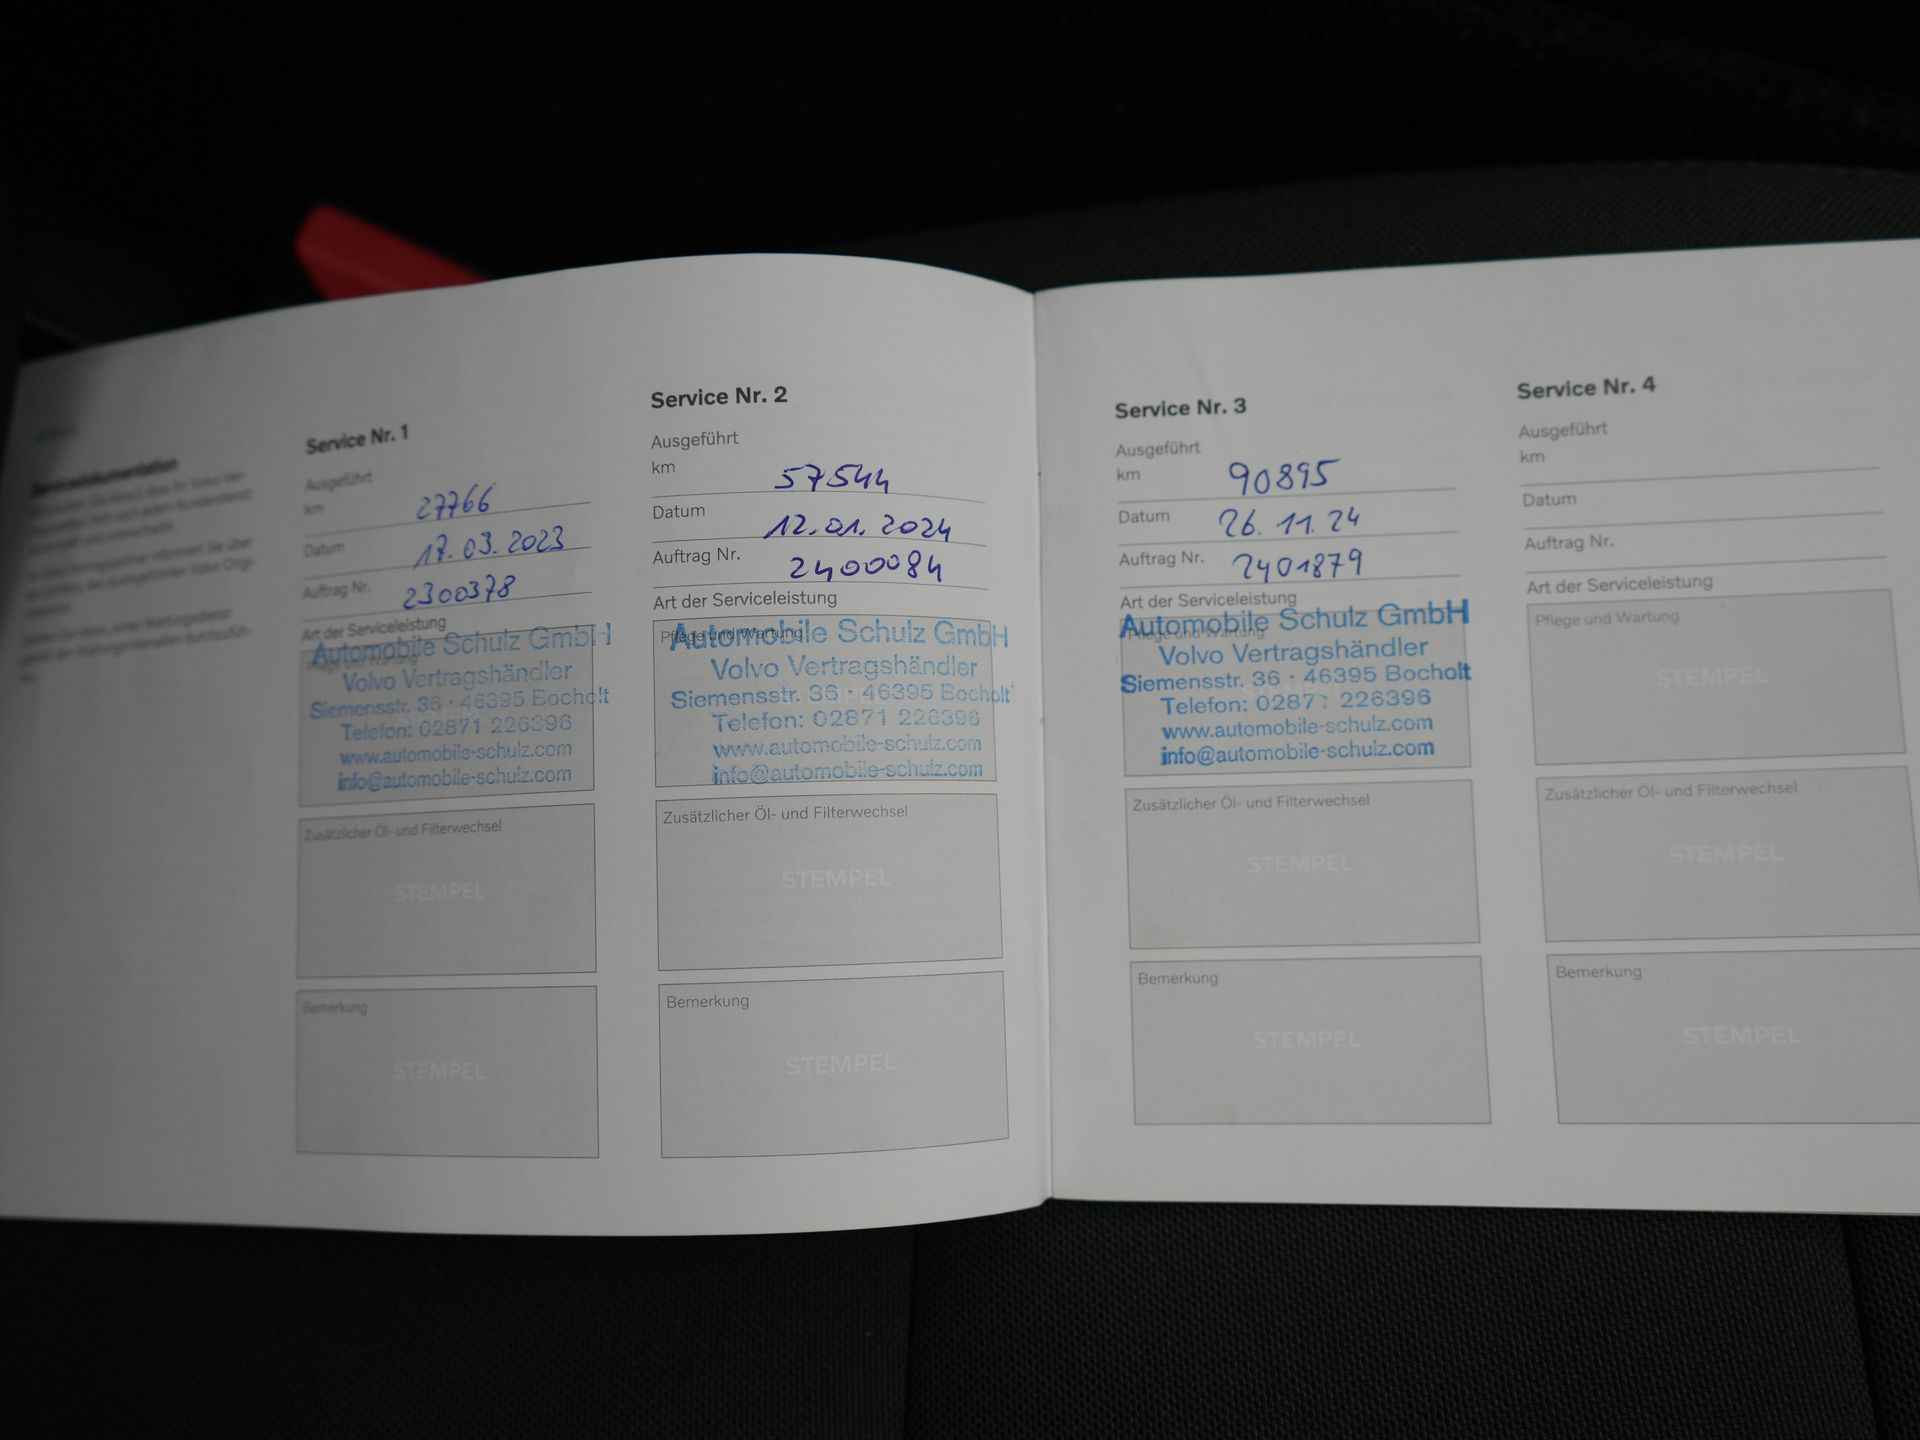 Servicedokumentation
Service Nr. 1
Ausgeführt
km 27766
Datum 17.03.2023
Auftrag Nr. 2300378
Art der Serviceleistung
Automobile Schulz GmbH
Volvo Vertragshändler
Siemensstr. 36 · 46395 Bocholt
Telefon: 02871 226396
www.automobile-schulz.com
info@automobile-schulz.com
Zusätzlicher Öl- und Filterwechsel
STEMPEL
Bemerkung
STEMPEL
Service Nr. 2
Ausgeführt
km 57544
Datum 12.01.2024
Auftrag Nr. 2400084
Art der Serviceleistung
Pflege und Wartung
Automobile Schulz GmbH
Volvo Vertragshändler
Siemensstr. 36 · 46395 Bocholt
Telefon: 02871 226396
www.automobile-schulz.com
info@automobile-schulz.com
Zusätzlicher Öl- und Filterwechsel
STEMPEL
Bemerkung
STEMPEL
Service Nr. 3
Ausgeführt
km 90895
Datum 26.11.24
Auftrag Nr. 2401879
Art der Serviceleistung
Pflege und Wartung
Automobile Schulz GmbH
Volvo Vertragshändler
Siemensstr. 36 · 46395 Bocholt
Telefon: 02871 226396
www.automobile-schulz.com
info@automobile-schulz.com
Zusätzlicher Öl- und Filterwechsel
STEMPEL
Bemerkung
STEMPEL
Service Nr. 4
Ausgeführt
km
Datum
Auftrag Nr.
Art der Serviceleistung
Pflege und Wartung
STEMPEL
Zusätzlicher Öl- und Filterwechsel
STEMPEL
Bemerkung
STEMPEL